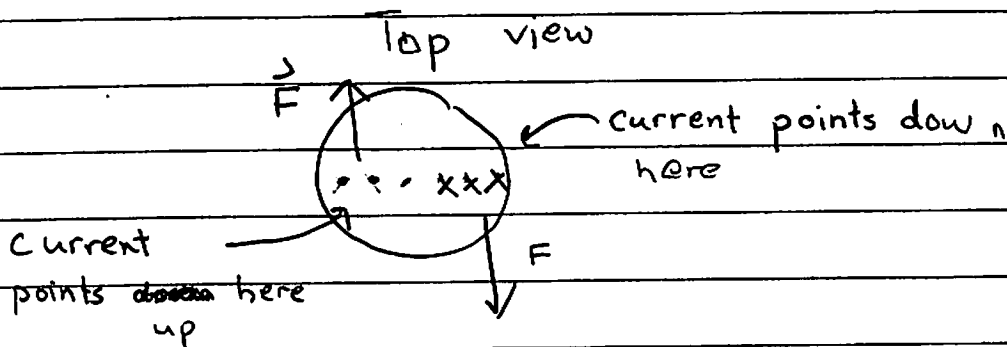 Top view
F
current points down
here
F
current
points here
up